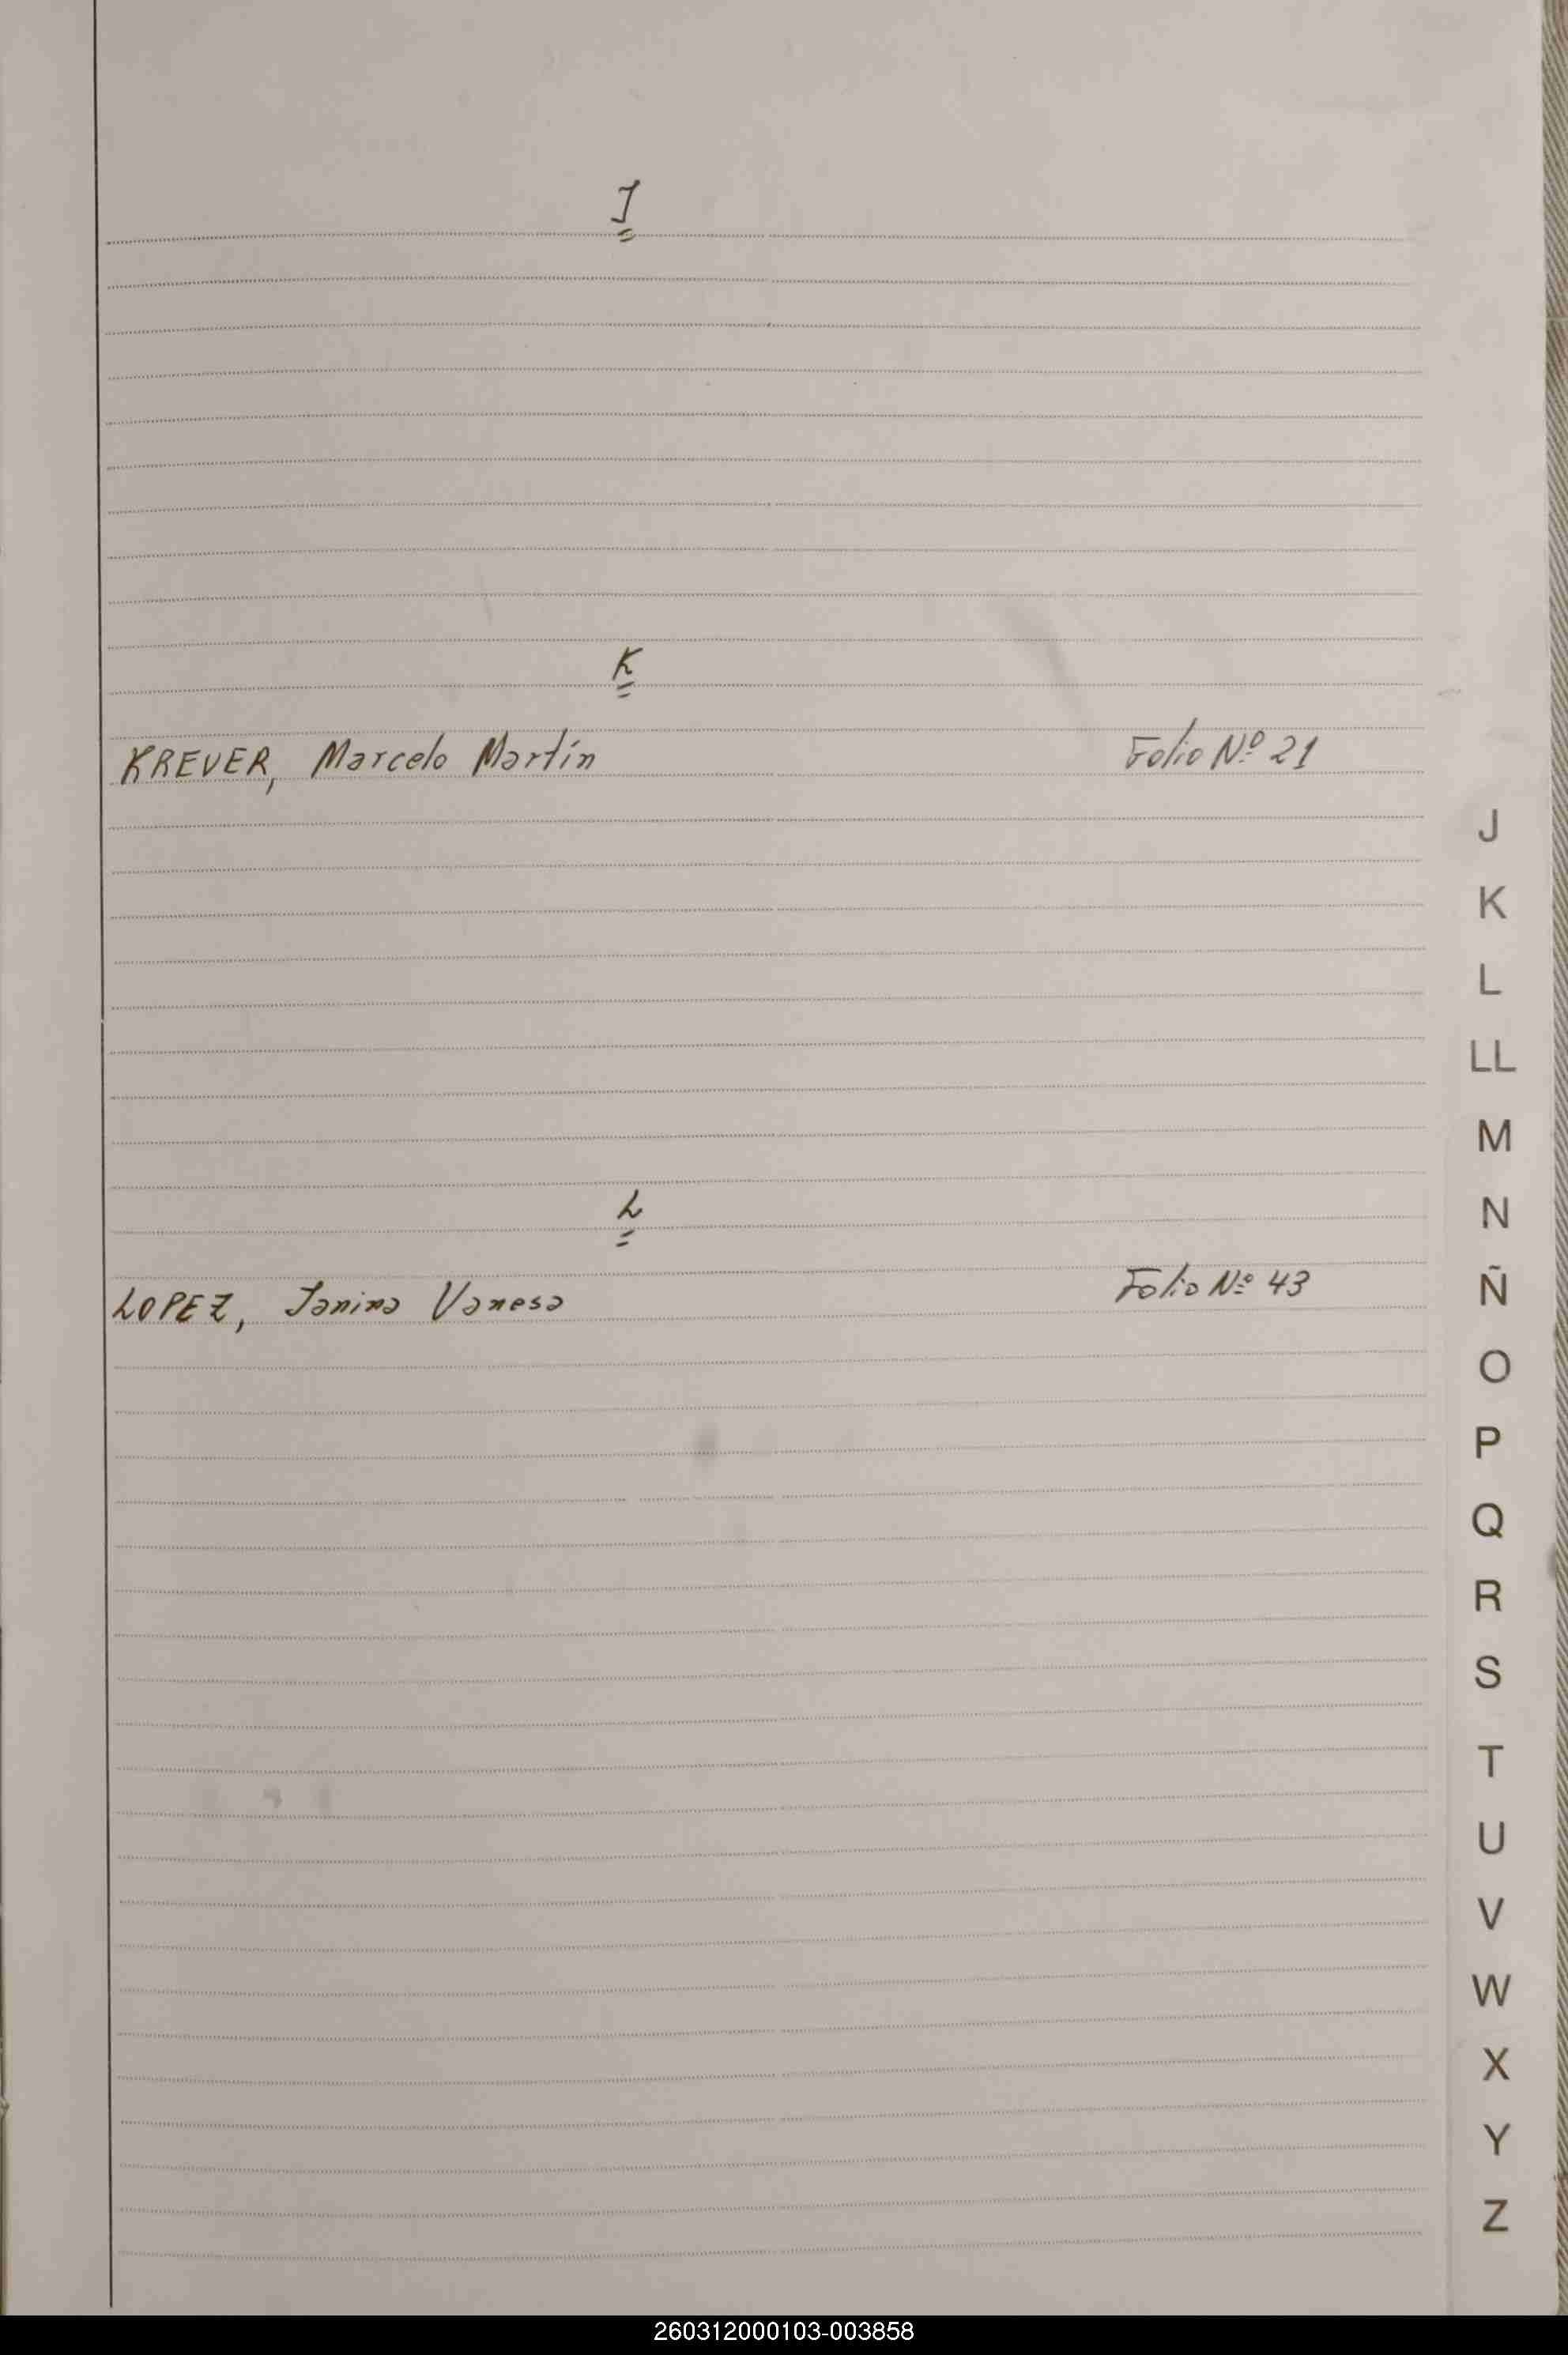 J
K
KREVER, Marcelo Martín Folio Nº 21
L
LOPEZ, Janina Vanesa Folio Nº 43
J
K
L
LL
M
N
Ñ
O
P
Q
R
S
T
U
V
W
X
Y
Z
260312000103-003858